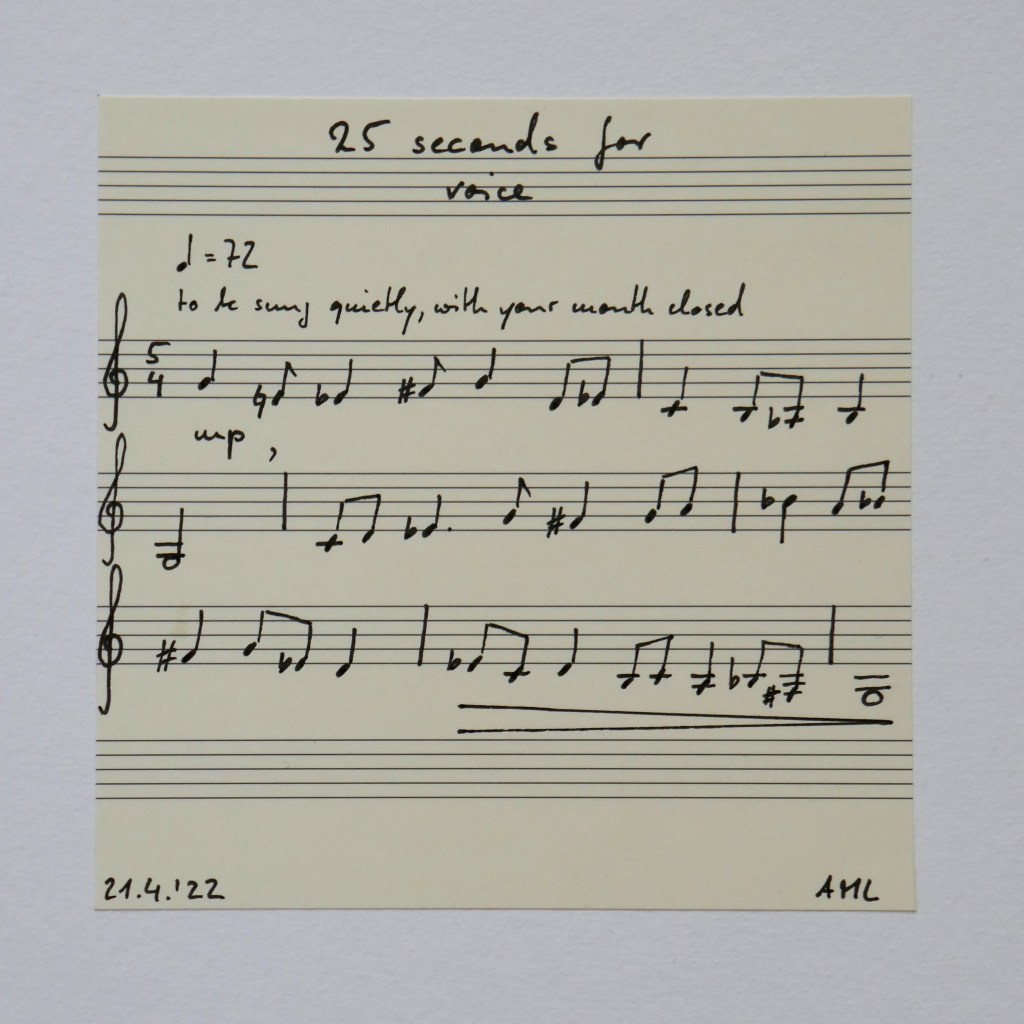 25 seconds for
voice
♩ = 72
to be sung quietly, with your mouth closed
5
4
mp ,
21.4.'22
AML